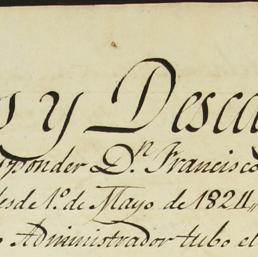 s y Desca
sponder D.n Francisco
desde 1.o de Mayo de 1824,,
Administrador tubo el